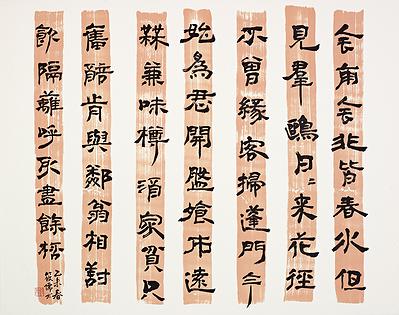 舍南舍北皆春水但
見羣鷗日〻来花徑
不曾緣客掃蓬門今
始為君開盤飧市遠
無兼味樽酒家貧只
舊醅肯與鄰翁相對
飲隔籬呼取盡餘桮
乙未春